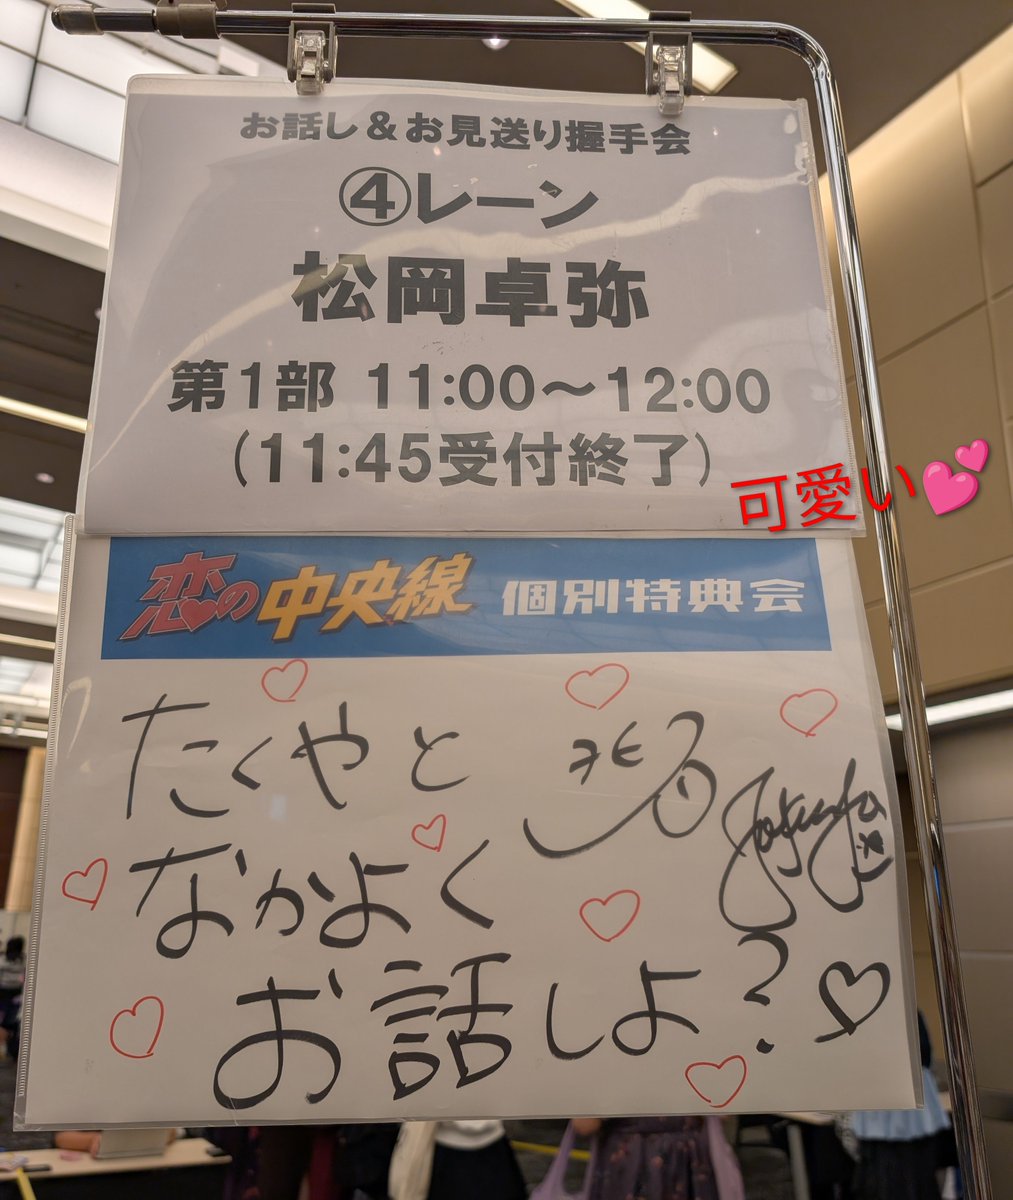 お話し＆お見送り握手会
④レーン
松岡卓弥
第1部 11:00～12:00
(11:45受付終了)
可愛い💕
恋の中央線 個別特典会
たくやと
なかよく
お話しよ?♡